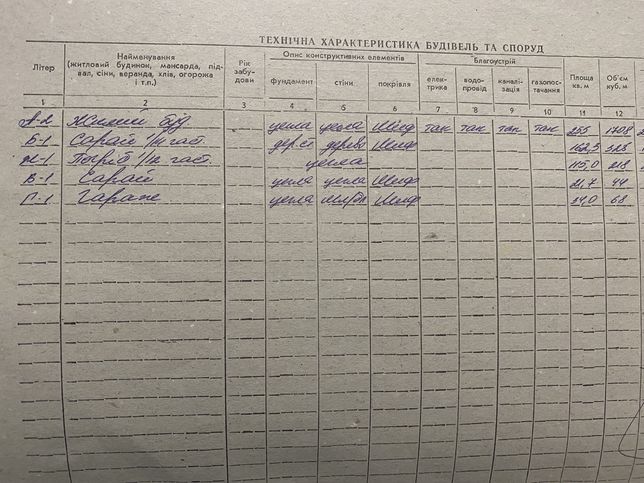 ТЕХНІЧНА ХАРАКТЕРИСТИКА БУДІВЕЛЬ ТА СПОРУД
Літер Найменування (житловий будинок, мансарда, підвал, сіни, веранда, хлів, огорожа і т.п.) Рік забудови Опис конструктивних елементів Благоустрій Площа кв. м Об'єм куб. м
фундамент стіни покрівля елек-трика водо-провід каналі-зація газопос-тачання
1 2 3 4 5 6 7 8 9 10 11 12
А-2 Жилий буд цегла цегла шиф так так так так 255 1708
Б-1 Сарай 1/1 част. дер.ст дерево шиф 162,5 325
цегла 115,0 218
В-1 Сарай цегла цегла шиф 21,7 44
Г-1 Гараж цегла шиф 34,0 68